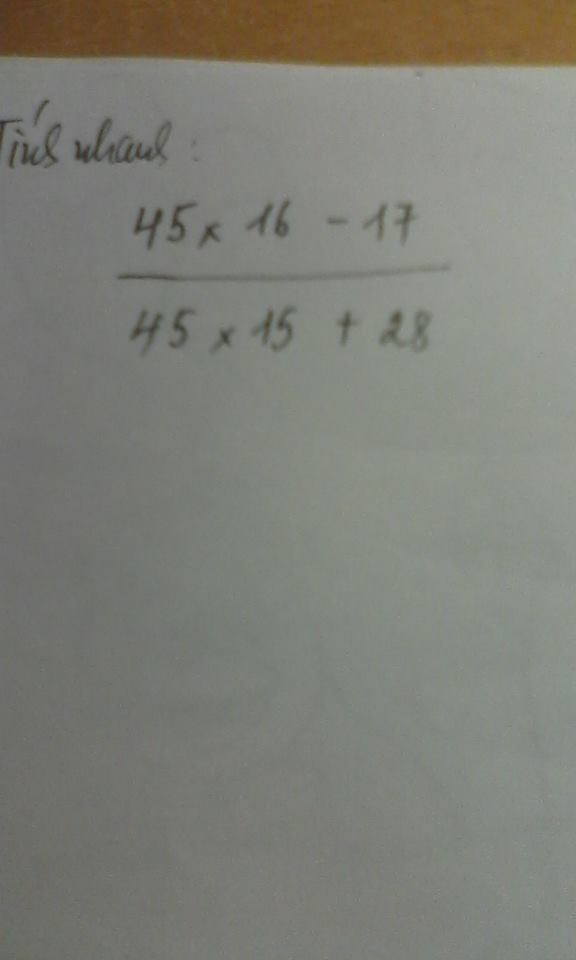 Tính nhanh :
45 x 16 - 17
45 x 15 + 28